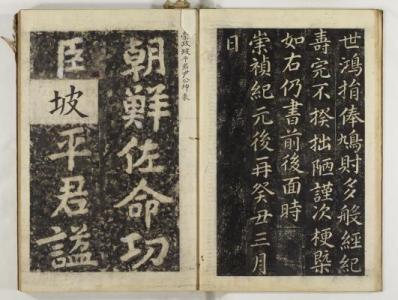 世鴻捐俸鳩財多般經紀
壽完不揆拙陋謹次梗槩
如右仍書前後面時
崇禎紀元後再癸丑三月
日
坡平君尹公坤表
朝鮮佐命功
臣坡平君諡